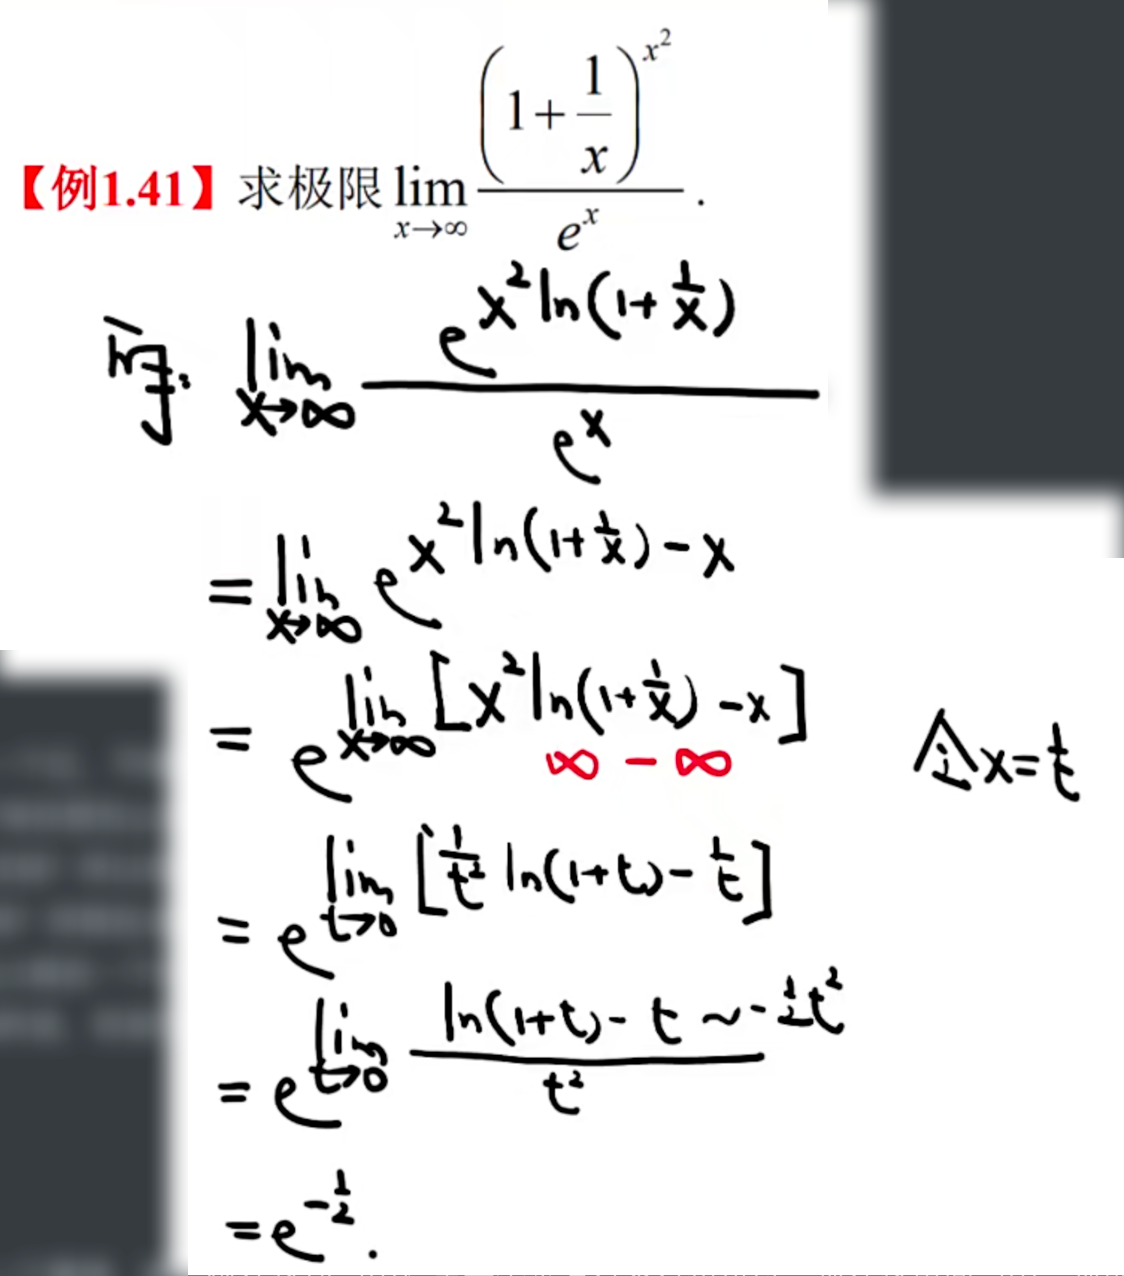 【例1.41】求极限 lim_{x→∞} (1+1/x)^{x²} / e^x .
lim_{x→∞} e^{x² ln(1+1/x)} / e^x
= lim_{x→∞} e^{x² ln(1+1/x) - x}
= e^{lim_{x→∞} [x² ln(1+1/x) - x]} 令 x = t
∞ - ∞
= e^{lim_{t→0} [1/t² ln(1+t) - 1/t]}
= e^{lim_{t→0} (ln(1+t) - t ~ -1/2 t²) / t²}
= e^{-1/2} .